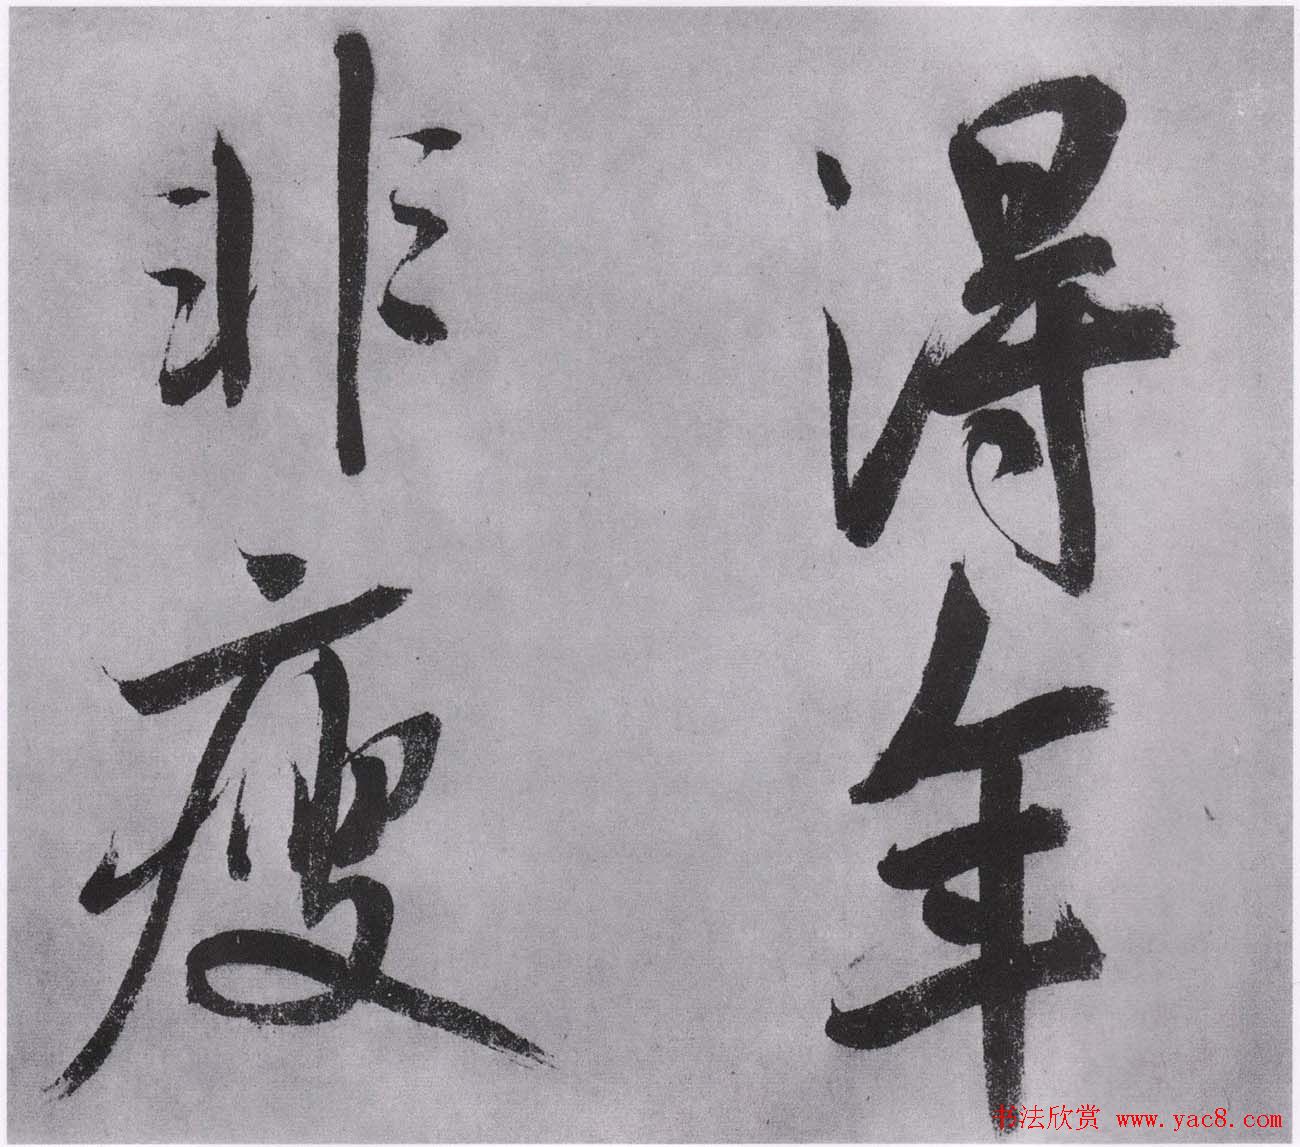 得年
非瘦
书法欣赏 www.yac8.com